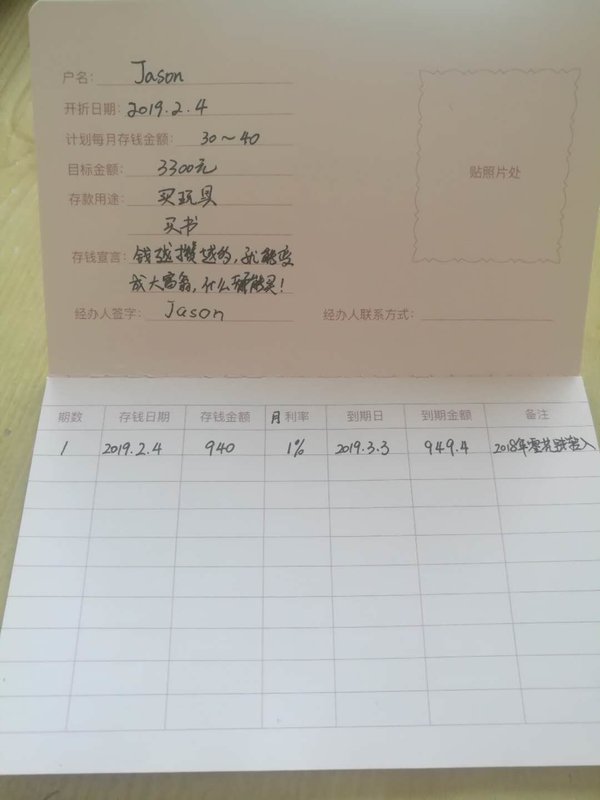 户名: Jason
开折日期: 2019.2.4
计划每月存钱金额: 30～40
目标金额: 3300元
存款用途: 买玩具
买书
存钱宣言: 钱越攒越多,就能变
成大富翁,什么都能买!
经办人签字: Jason 经办人联系方式:
贴照片处
期数 存钱日期 存钱金额 月利率 到期日 到期金额 备注
1 2019.2.4 940 1% 2019.3.3 949.4 2018年零花钱转入